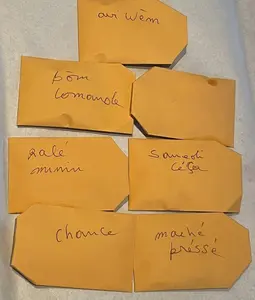 our wèm
bōm
comande
zalé
minin
samedi
céla
chance
maché
préssé